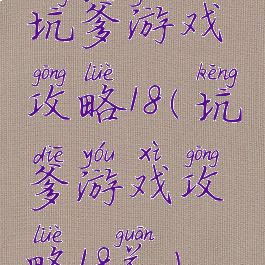 坑爹游戏
gōng lüè kēng
攻略18(坑
diē yóu xì gōng
爹游戏攻
lüè guān
略18关)